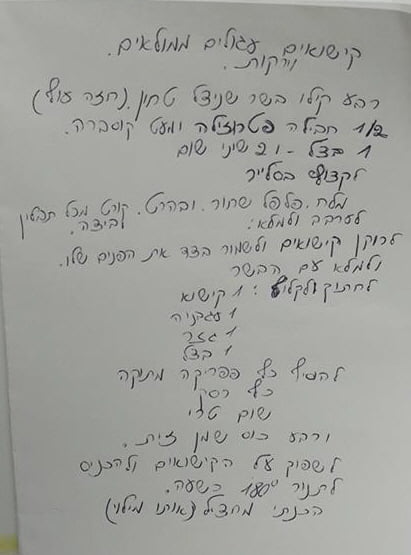 קישואים עגולים ממולאים.
וירקות.
רבע קילו בשר שניצל טחון. (חזה עוף)
1/2 חבילה פטרוזילה ומעט קוסברה.
1 בצל - ו 2 שיני שום
לקצוץ בסלייר
מלח. פלפל שחור. ובהרט. קורט מכל תבלין
לערבב ולמלא: וביצה.
לרוקן קישואים ולשמור בצד את הפנים שלו.
ולמלא עם הבשר
לחתוך ולקלוף: 1 קישוא
1 עגבניה
1 גזר
1 בצל
להוסיף כף פפריקה מתוקה
כף רסק
שום טרי
ורבע כוס שמן זית.
לשפוך על הקישואים ולהכניס
לתנור 180° כשעה.
הכנתי מחציל (אותו מילוי)